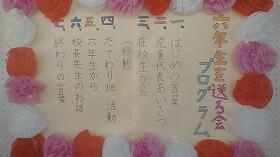 六年生を送る会
プログラム
一、はじめの言葉
二、児童代表あいさつ
三、在校生から
移動
四、たてわり班 活動
五、六年生から
六、校長先生のお話
七、終わりの言葉